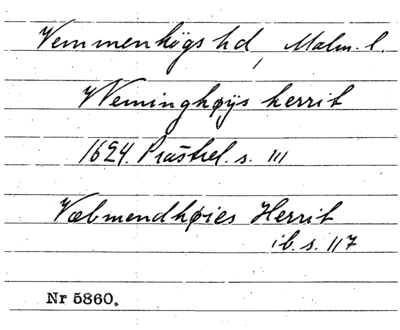 Vemmenhögs hd, Malm. l.
Weminghøÿs herrit
1624. Prästrel. s. 111
Væbmendhøies Herrit
ib. s. 117
Nr 5860.